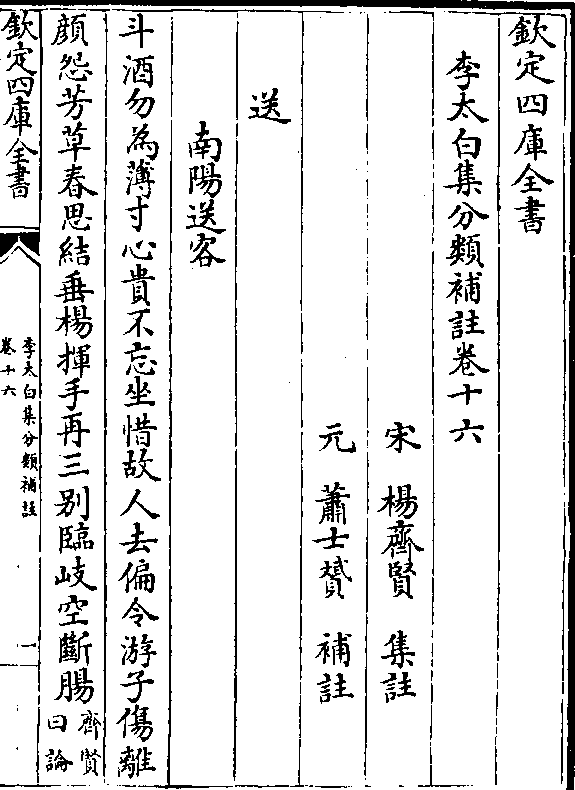 欽定四庫全書
李太白集分類補註卷十六
宋 楊齊賢 集註
元 蕭士贇 補註
送
南陽送客
斗酒勿為薄寸心貴不忘坐惜故人去偏令游子傷離
顔怨芳草春思結垂楊揮手再三别臨岐空斷腸齊賢
曰論
欽定四庫全書
李太白集分類補註
卷十六
一